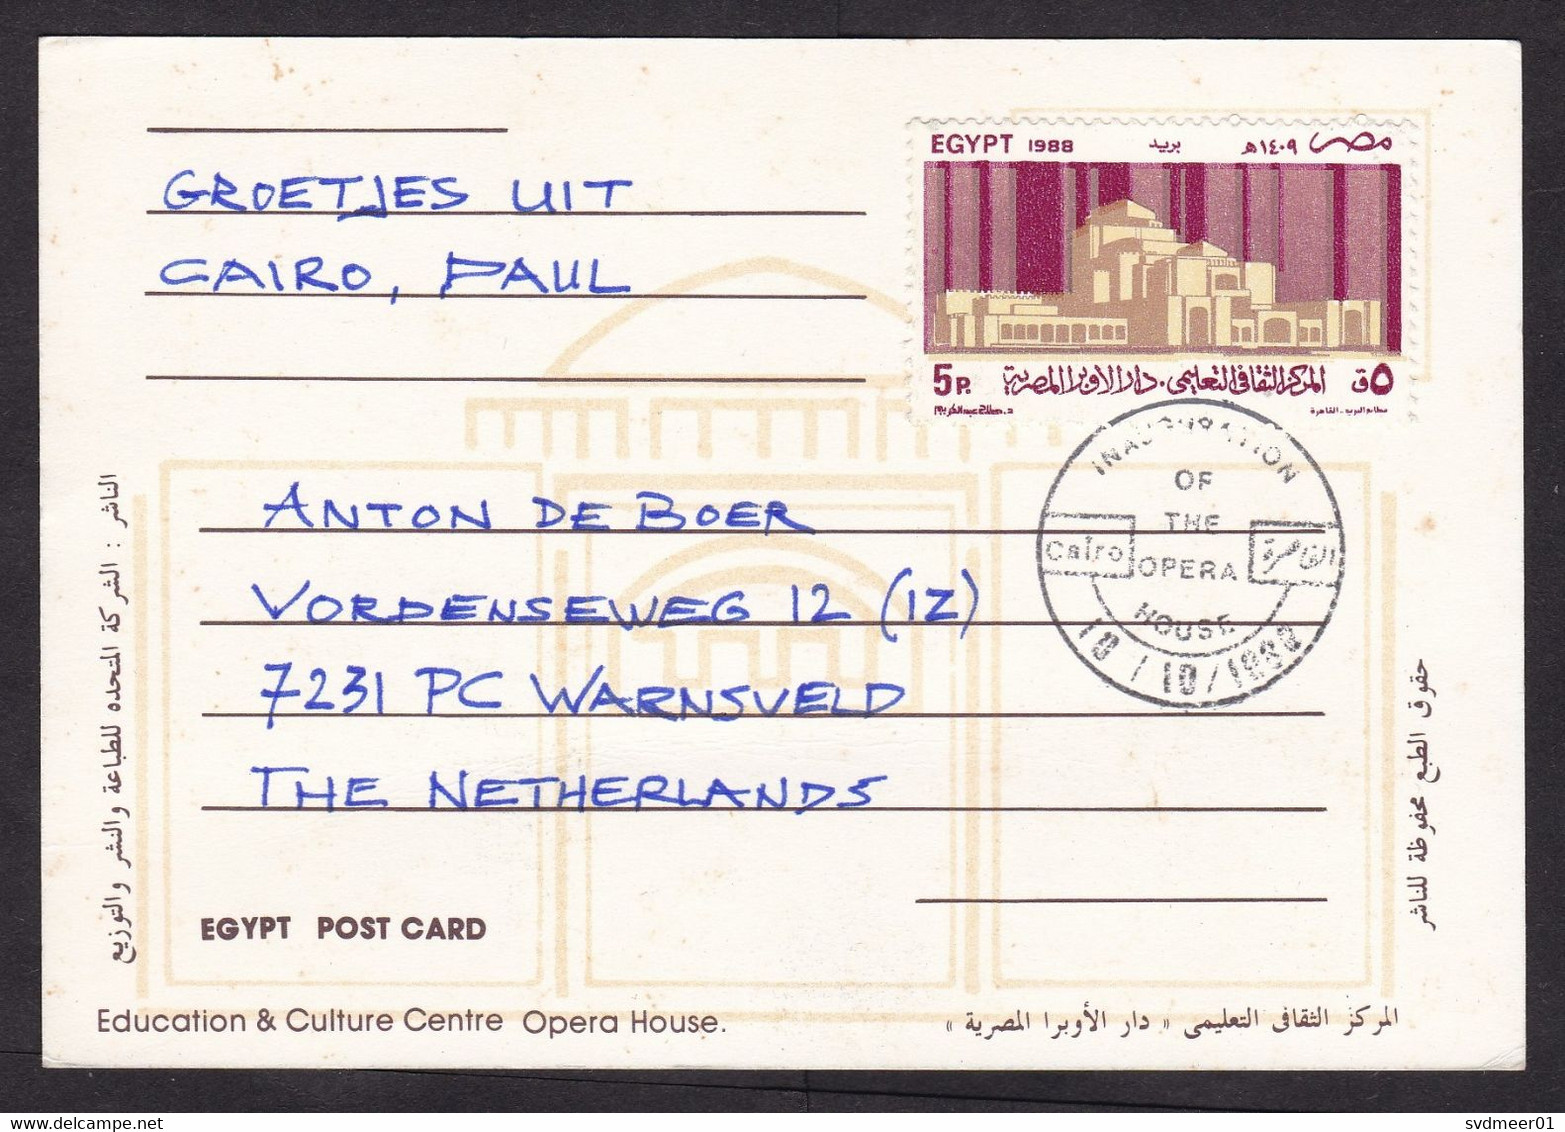 EGYPT 1988 بريد ١٤٠٩هـ مصر
5P. المركز الثقافى التعليمى . دار الأوبرا المصرية ٥ق
د. صلاح عبد الكريم مطابع البريد - القاهرة
GROETJES UIT
CAIRO, PAUL
INAUGURATION
OF
THE
Cairo OPERA القاهرة
HOUSE
10/10/1988
ANTON DE BOER
VORDENSEWEG 12 (IZ)
7231 PC WARNSVELD
THE NETHERLANDS
الناشر : الشركة المتحده للطباعة والنشر والتوزيع
حقوق الطبع محفوظة للناشر
EGYPT POST CARD
Education & Culture Centre Opera House.
المركز الثقافى التعليمى « دار الأوبرا المصرية »
www.delcampe.net
svdmeer01